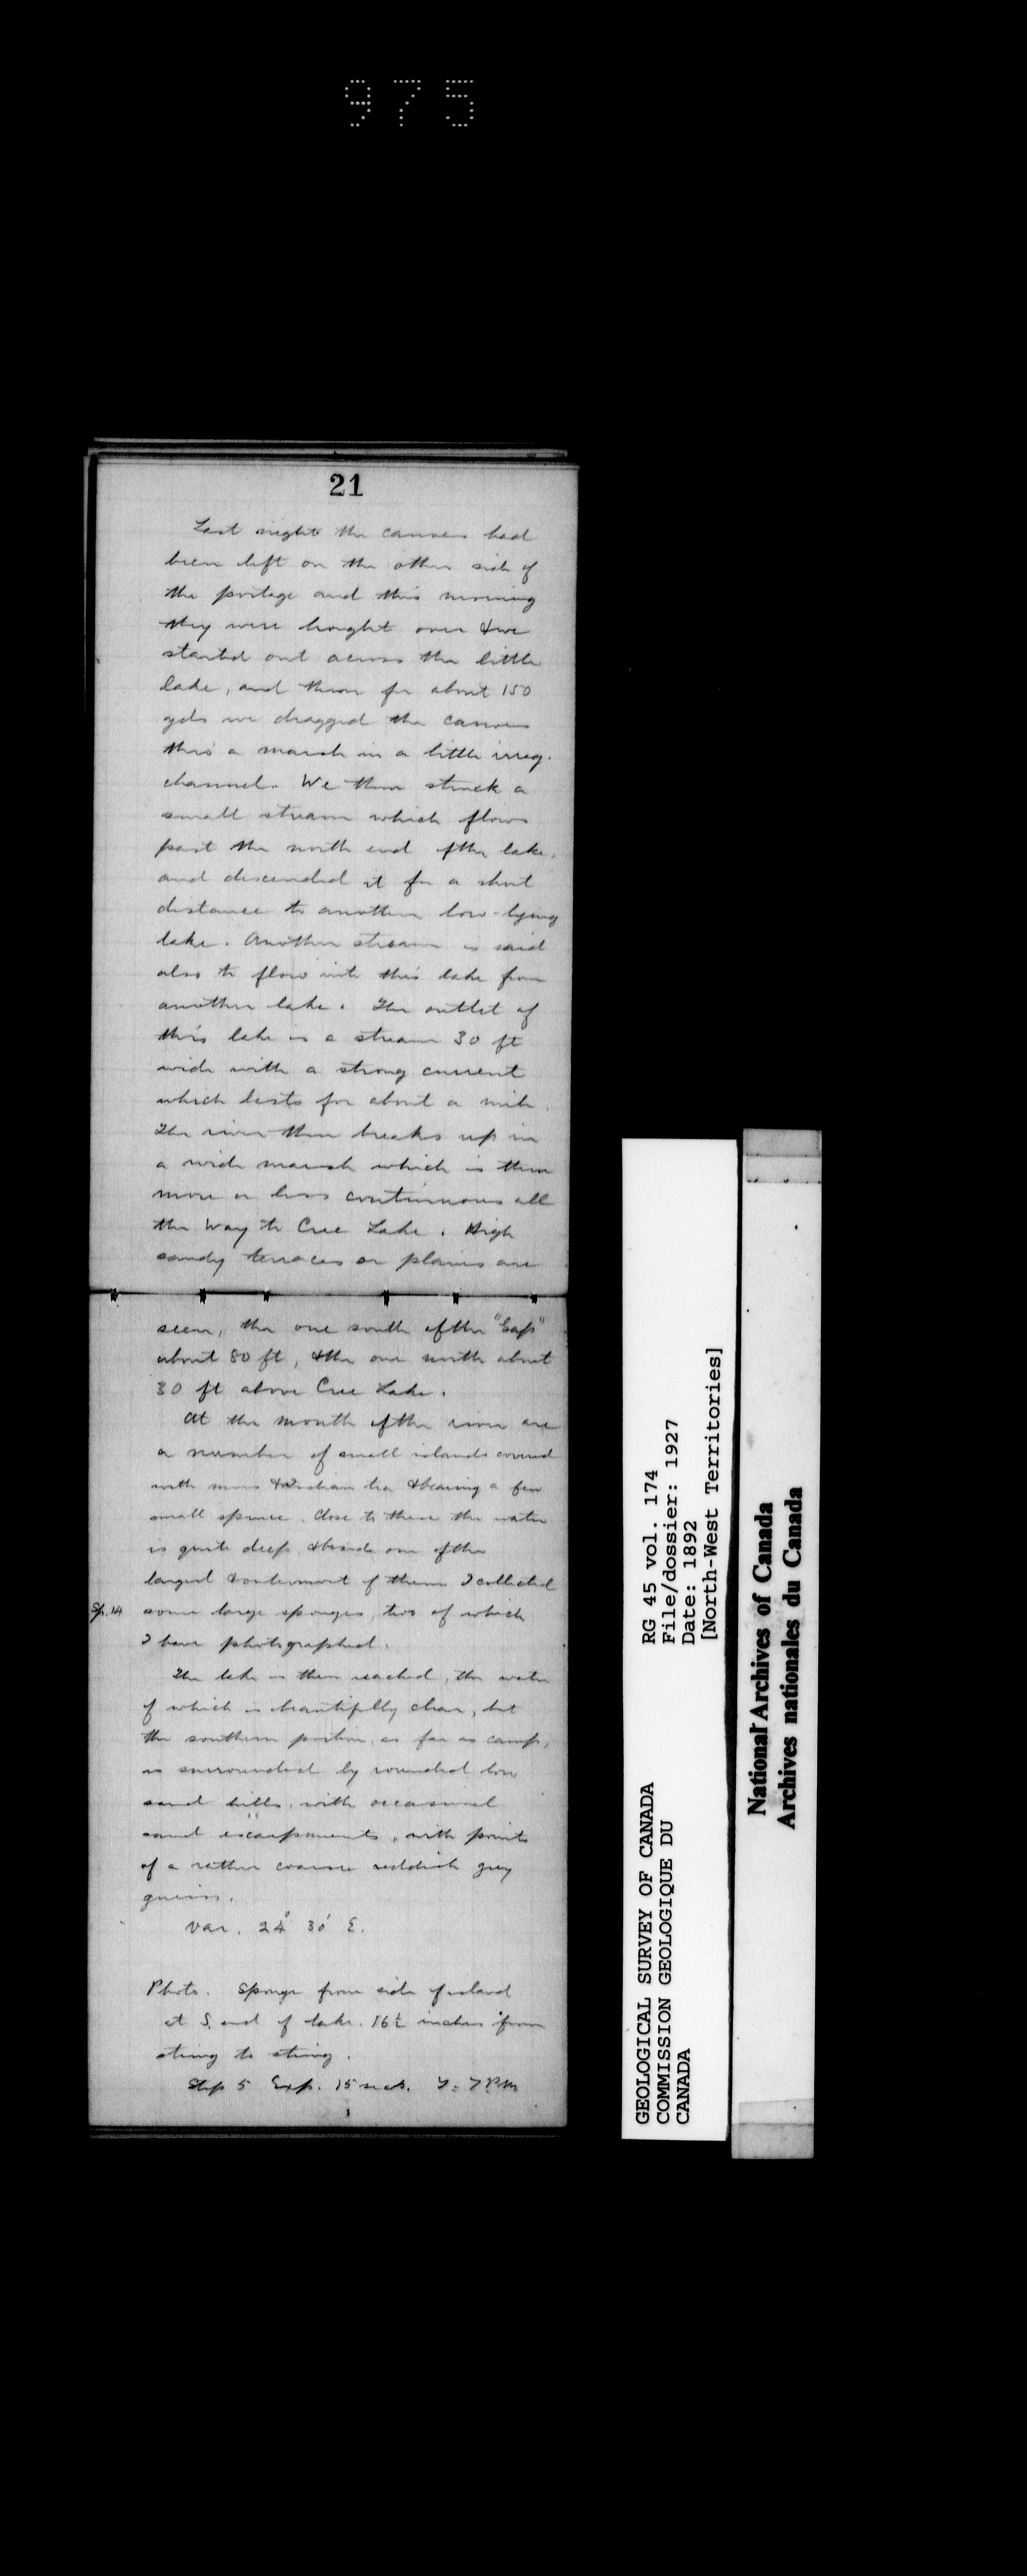 975
21
Last night the canoes had
been left on the other side of
the portage and this morning
they were brought over & we
started out across the little
lake, and then for about 150
yds we dragged the canoes
thro' a marsh in a little irreg.
channel. We then struck a
small stream which flows
past the north end of the lake,
and descended it for a short
distance to another low-lying
lake. Another stream is said
also to flow into this lake from
another lake. The outlet of
this lake is a stream 30 ft
wide with a strong current
which lasts for about a mile.
The river then breaks up in
a wide marsh which is then
more or less continuous all
the way to Cree Lake. High
sandy terraces or plains are
seen, the one south of the "Gap"
about 80 ft, & the one north about
30 ft above Cree Lake.
At the mouth of the river are
a number of small islands covered
with moss & Indian tea & bearing a few
small spruce. Close to these the water
is quite deep, & beside one of the
largest & outermost of them I collected
Sp. 14 some large sponges, two of which
I have photographed.
The lake is then reached, the water
of which is beautifully clear, but
the southern portion, as far as camp,
is surrounded by rounded low
sand hills, with occasional
sand escarpments, with points
of a rather coarse reddish grey
gneiss.
Var. 24° 30' E.
Photo. Sponge from side of island
at S. end of lake. 16½ inches from
string to string.
Stop 5 Exp. 15 secs. T = 7 PM
GEOLOGICAL SURVEY OF CANADA
COMMISSION GEOLOGIQUE DU
CANADA
RG 45 vol. 174
File/dossier: 1927
Date: 1892
[North-West Territories]
National Archives of Canada
Archives nationales du Canada